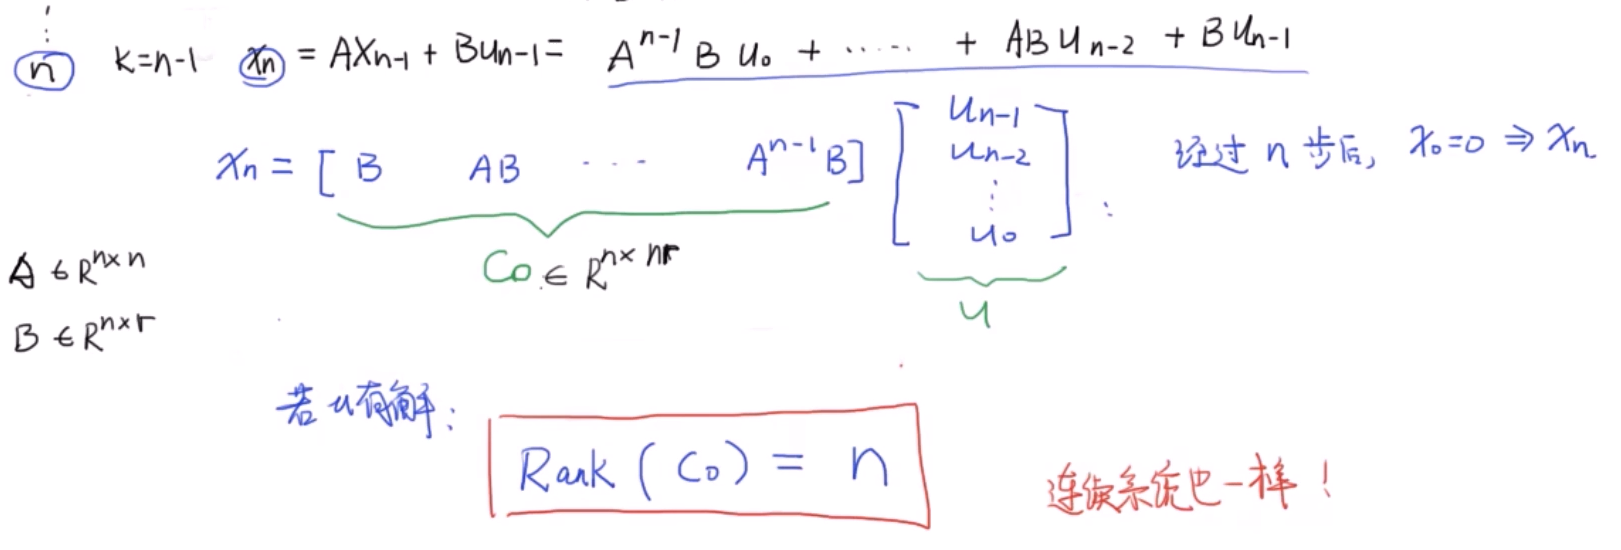 ⋮
n k=n-1 xn = Axn-1 + Bun-1 = A^{n-1} B u0 + ⋯⋯ + AB un-2 + B un-1
xn = [ B AB ⋯ A^{n-1} B ] [ un-1 un-2 ⋮ u0 ] 经过 n 步后, x0=0 ⇒ xn
A ∈ R^{n×n} Co ∈ R^{n×nr} u
B ∈ R^{n×r}
若 u 有解:
Rank ( Co ) = n
连续系统也一样!